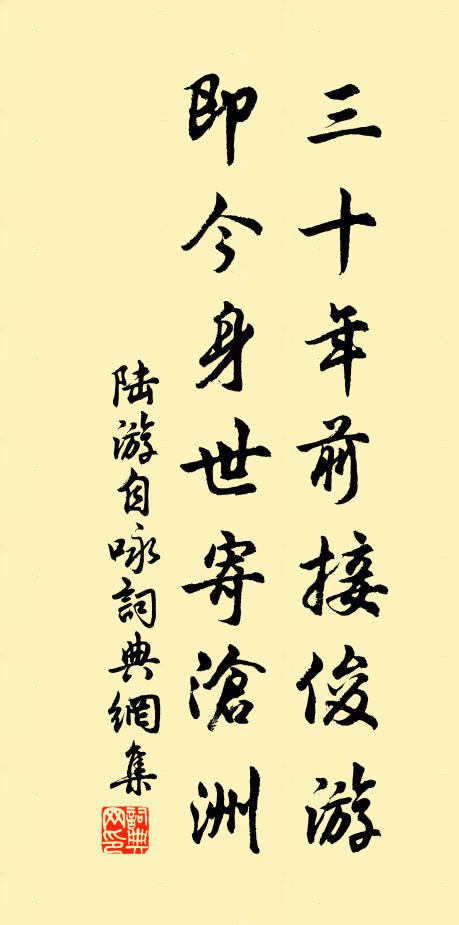 三十年前接俊游
即今身世寄滄洲
陆游自咏詞典網集
詞典
网印